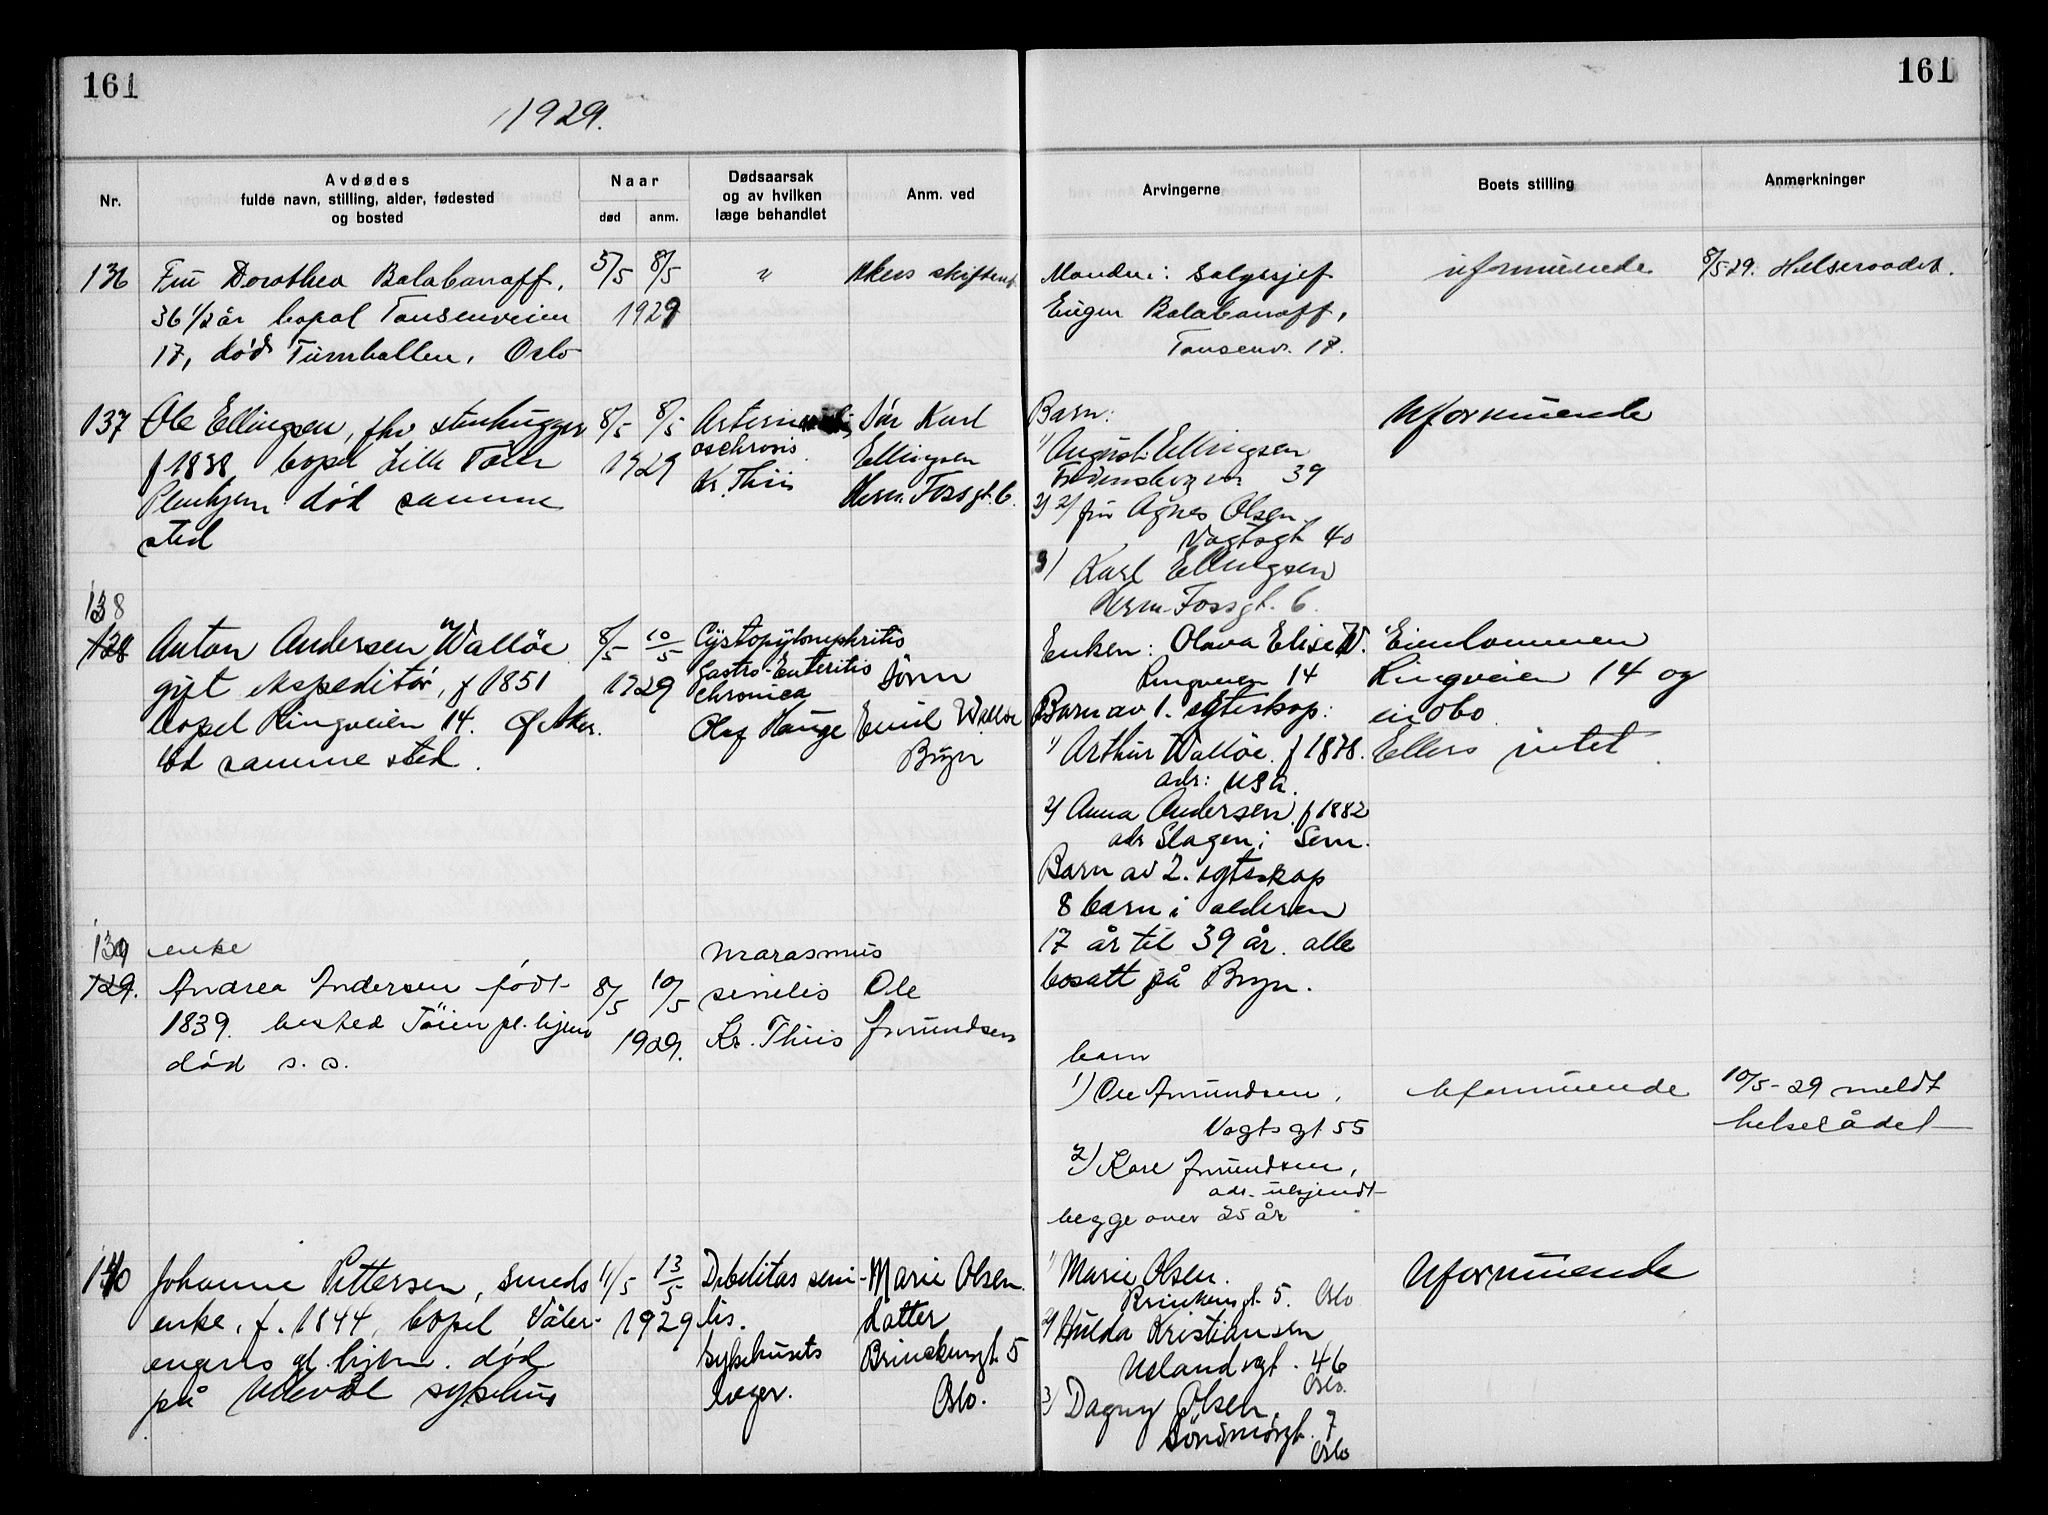 161
161
1929.
Nr.
Avdødes
fulde navn, stilling, alder, fødested
og bosted
Naar
død
anm.
Dødsaarsak
og av hvilken
læge behandlet
Anm. ved
Arvingerne
Boets stilling
Anmerkninger
136
Fru Dorothea Balabanoff,
36 1/2 år bopæl Tonsenveien
17, død Turnhallen, Oslo
5/5 8/5
1929
"
Akers skifteret
Manden: Salgssjef
Eugen Balabanoff,
Tonsenv. 17.
uformuende
8/5-29. Helseraadet.
137
Ole Ellingsen, fhv stenhugger
f 1838 bopel Lille Tøien
Pleiehjem død samme
sted
8/5 8/5
1929
Arterio
osclerosis
Kr. Thiis
Sør Karl
Ellingsen
Herm. Fossgt. 6.
Barn:
1) August Ellingsen
39
2) fru Agnes Olsen
Vogtsgt 40
3) Karl Ellingsen
Herm. Fossgt. 6.
Uformuende
138
128
Anton Andersen Walløe
gift ekspeditør, f 1851
bopel Ringveien 14. Ø. Aker.
død samme sted.
8/5 10/5
1929
Cystopyelonephritis
Gastro-Enteritis
chronica
Olaf Hauge
Sønn
Emil Walløe
Bryn
Enken: Olava Elise W.
Ringveien 14
Barn av 1. egteskap:
1) Arthur Walløe. f 1878.
adr: USA.
2) Anna Andersen f 1882
adr Slagen i Sem.
Barn av 2. egteskap
8 barn i alderen
17 år til 39 år. alle
bosatt på Bryn.
Eiendommen
Ringveien 14 og
indbo
Ellers intet.
139
129.
enke
Andrea Andersen født
1839. bosted Tøien pl. hjem
død s. s.
8/5 10/5
1929.
Marasmus
senilis
Kr. Thiis
Ole
Amundsen
barn
1) Ole Amundsen,
Vogts gt 55
2) Kare Amundsen,
adr. ukjendt
begge over 25 år
Uformuende
10/5-29 meldt
helserådet
140
Johanne Pettersen, smeds
enke, f. 1844, bopel Våler-
engens gl. hjem. død
på Ullevål sykehus
11/5 13/5
1929
Debilitas seni-
lis.
Sykehusets
læger.
Marie Olsen
datter
Brinckensgt 5
Oslo.
1) Marie Olsen.
Brinckensgt. 5. Oslo
2) Hulda Kristiansen
Uelandsgt. 46
Oslo.
3) Dagny Olsen,
Søndmørgt. 7
Oslo
Uformuende